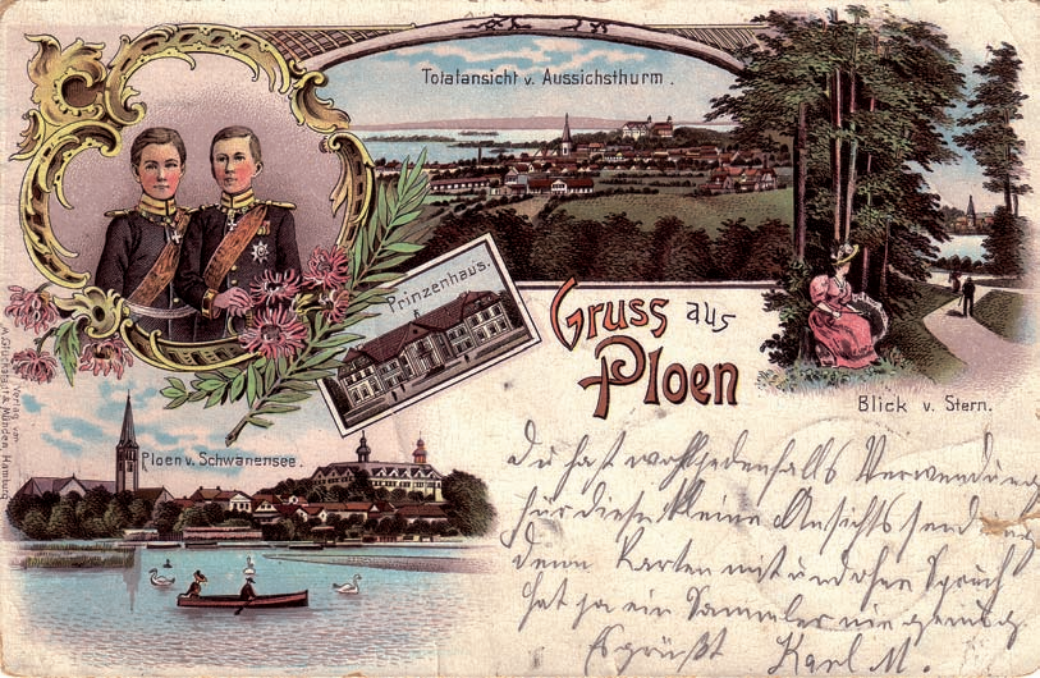 Totalansicht v. Aussichsthurm.
Prinzenhaus.
Gruss aus
Ploen
Blick v. Stern.
Ploen v. Schwanensee.
Verlag von
M. Glückstadt & Münden Hamburg
Du hast wohl jedenfalls Verwendung
für diese kleine Ansichtssendung
denn Karten mit und ohne Spruch
hat ja ein Sammler nie genug.
Es grüßt Karl M.